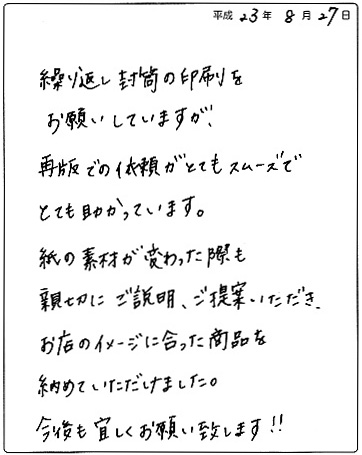 平成 23 年 8 月 27 日
繰り返し封筒の印刷を
お願いしていますが、
再版での依頼がとてもスムーズで
とても助かっています。
紙の素材が変わった際も
親切にご説明、ご提案いただき、
お店のイメージに合った商品を
納めていただけました。
今後も宜しくお願い致します!!